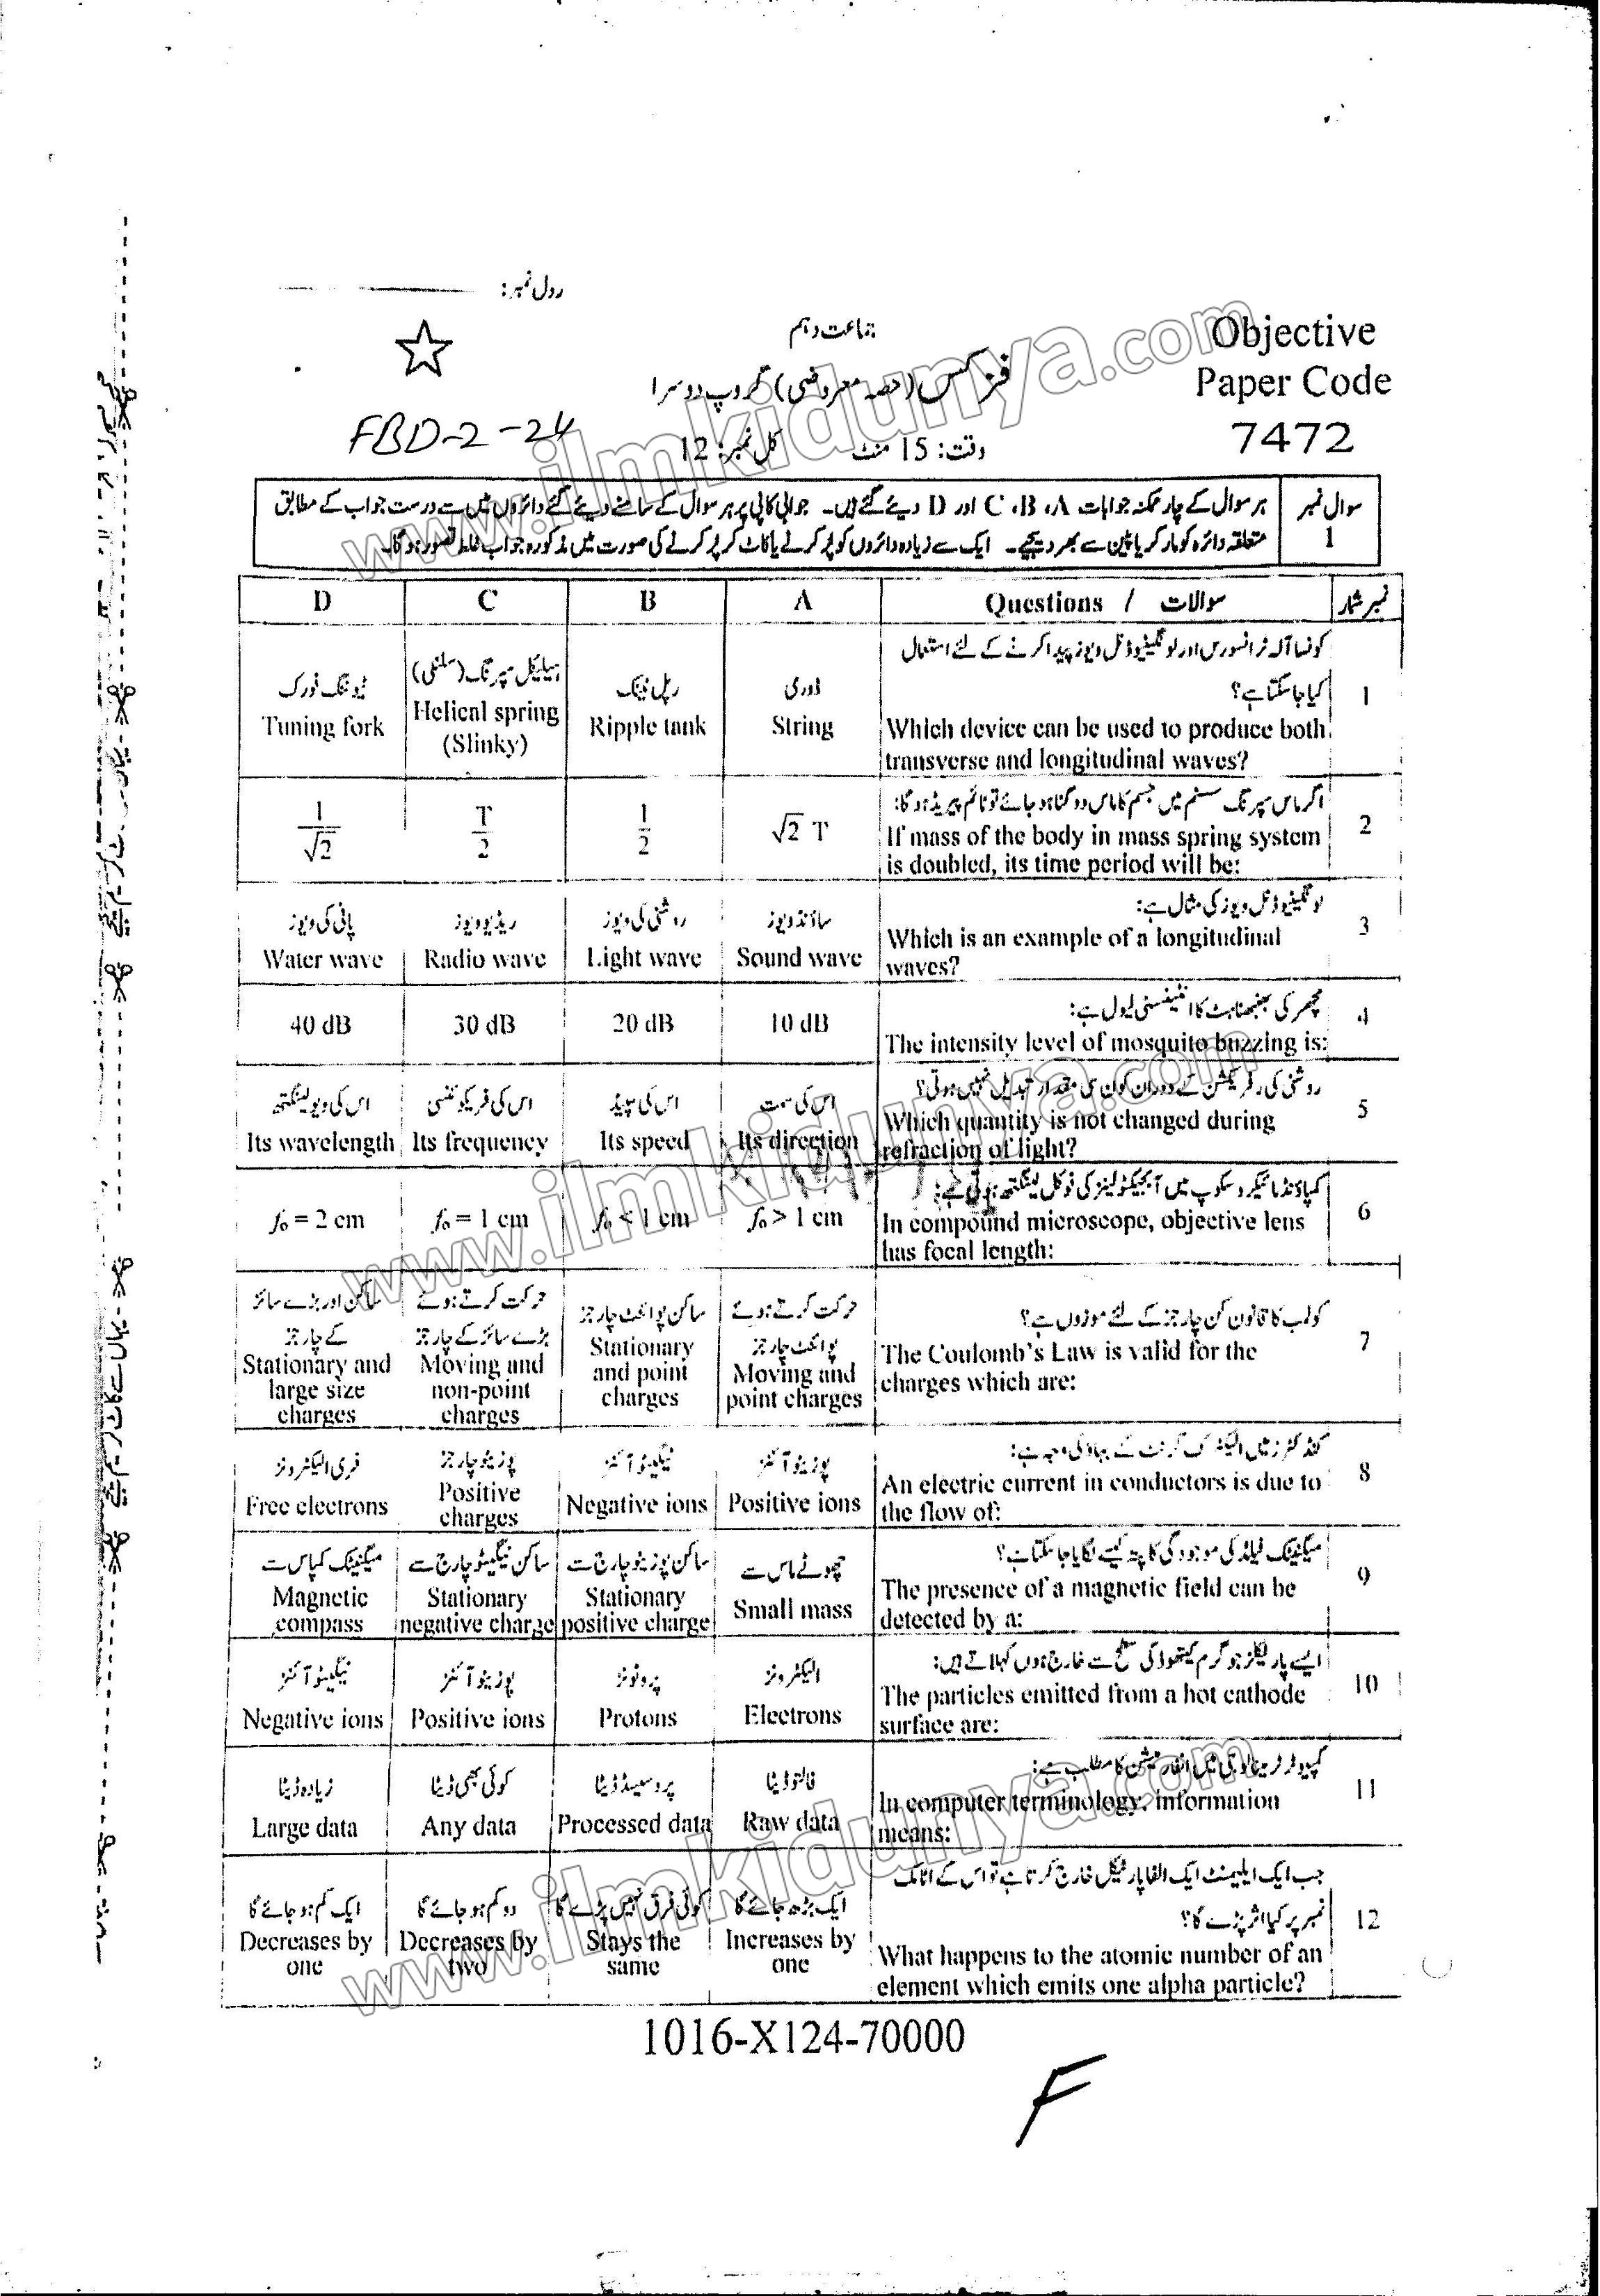 رول نمبر:
جماعت دہم
Objective
Paper Code
7472
فزکس (حصہ معروضی) گروپ دوسرا
وقت: 15 منٹ کل نمبر: 12
FBD-2-24
سوال نمبر 1
ہر سوال کے چار ممکنہ جوابات C، B، A اور D دیئے گئے ہیں۔ جوابی کاپی پر ہر سوال کے سامنے دیئے گئے دائروں میں سے درست جواب کے مطابق
متعلقہ دائرہ کو مارکر یا پین سے بھر دیجئے۔ ایک سے زیادہ دائروں کو پُر کرنے یا کاٹ کر پُر کرنے کی صورت میں مذکورہ جواب غلط تصور ہو گا۔
نمبر شمار
Questions / سوالات
A
B
C
D
1
کونسا آلہ ٹرانسورس اور لونگیٹیوڈنل ویوز پیدا کرنے کے لئے استعمال
کیا جا سکتا ہے؟
Which device can be used to produce both
transverse and longitudinal waves?
ڈوری
String
رپل ٹینک
Ripple tank
ہیلیکل سپرنگ (سلنکی)
Helical spring
(Slinky)
ٹیوننگ فورک
Tuning fork
2
اگر ماس سپرنگ سسٹم میں جسم کا ماس دوگنا ہو جائے تو ٹائم پیریڈ ہو گا:
If mass of the body in mass spring system
is doubled, its time period will be:
√2 T
1/2
T/2
1/√2
3
لونگیٹیوڈنل ویوز کی مثال ہے:
Which is an example of a longitudinal
waves?
ساؤنڈ ویوز
Sound wave
روشنی کی ویوز
Light wave
ریڈیو ویوز
Radio wave
پانی کی ویوز
Water wave
4
مچھر کی بھنبھناہٹ کا انٹینسٹی لیول ہے:
The intensity level of mosquito buzzing is:
10 dB
20 dB
30 dB
40 dB
5
روشنی کی رفریکشن کے دوران کون سی مقدار تبدیل نہیں ہوتی؟
Which quantity is not changed during
refraction of light?
اس کی سمت
Its direction
اس کی سپیڈ
Its speed
اس کی فریکوئنسی
Its frequency
اس کی ویولینگتھ
Its wavelength
6
کمپاؤنڈ مائیکروسکوپ میں آبجیکٹو لینز کی فوکل لینگتھ ہوتی ہے:
In compound microscope, objective lens
has focal length:
fₒ > 1 cm
fₒ < 1 cm
fₒ = 1 cm
fₒ = 2 cm
7
کولمب کا قانون کن چارجز کے لئے موزوں ہے؟
The Coulomb's Law is valid for the
charges which are:
حرکت کرتے ہوئے
پوائنٹ چارجز
Moving and
point charges
ساکن پوائنٹ چارجز
Stationary
and point
charges
حرکت کرتے ہوئے
بڑے سائز کے چارجز
Moving and
non-point
charges
ساکن اور بڑے سائز
کے چارجز
Stationary and
large size
charges
8
کنڈکٹرز میں الیکٹرک کرنٹ کے بہاؤ کی وجہ ہے:
An electric current in conductors is due to
the flow of:
پوزیٹو آئنز
Positive ions
نیگیٹو آئنز
Negative ions
پوزیٹو چارجز
Positive
charges
فری الیکٹرونز
Free electrons
9
میگنیٹک فیلڈ کی موجودگی کا پتہ کیسے لگایا جا سکتا ہے؟
The presence of a magnetic field can be
detected by a:
چھوٹے ماس سے
Small mass
ساکن پوزیٹو چارج سے
Stationary
positive charge
ساکن نیگیٹو چارج سے
Stationary
negative charge
میگنیٹک کمپاس سے
Magnetic
compass
10
ایسے پارٹیکلز جو گرم کیتھوڈ کی سطح سے خارج ہوں کہلاتے ہیں:
The particles emitted from a hot cathode
surface are:
الیکٹرونز
Electrons
پروٹونز
Protons
پوزیٹو آئنز
Positive ions
نیگیٹو آئنز
Negative ions
11
کمپیوٹر ٹرمینالوجی میں انفارمیشن کا مطلب ہے:
In computer terminology, information
means:
فالتو ڈیٹا
Raw data
پروسیسڈ ڈیٹا
Processed data
کوئی بھی ڈیٹا
Any data
زیادہ ڈیٹا
Large data
12
جب ایک ایلیمنٹ ایک الفا پارٹیکل خارج کرتا ہے تو اس کے اٹامک
نمبر پر کیا اثر پڑے گا؟
What happens to the atomic number of an
element which emits one alpha particle?
ایک بڑھ جائے گا
Increases by
one
کوئی فرق نہیں پڑے گا
Stays the
same
دو کم ہو جائے گا
Decreases by
two
ایک کم ہو جائے گا
Decreases by
one
1016-X124-70000
F
www.ilmkidunya.com
www.ilmkidunya.com
www.ilmkidunya.com